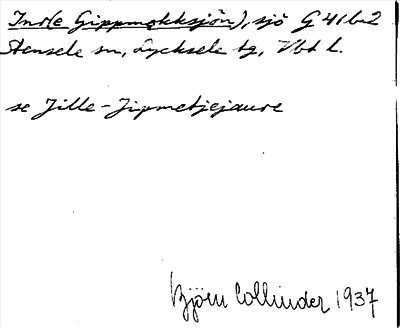 Inr(e Gippmokksjön), sjö G 41 b 2
Stensele sn, Lycksele tg, Vbt l.
se Jille-Jipmetjejaure
Björn Collinder 1937